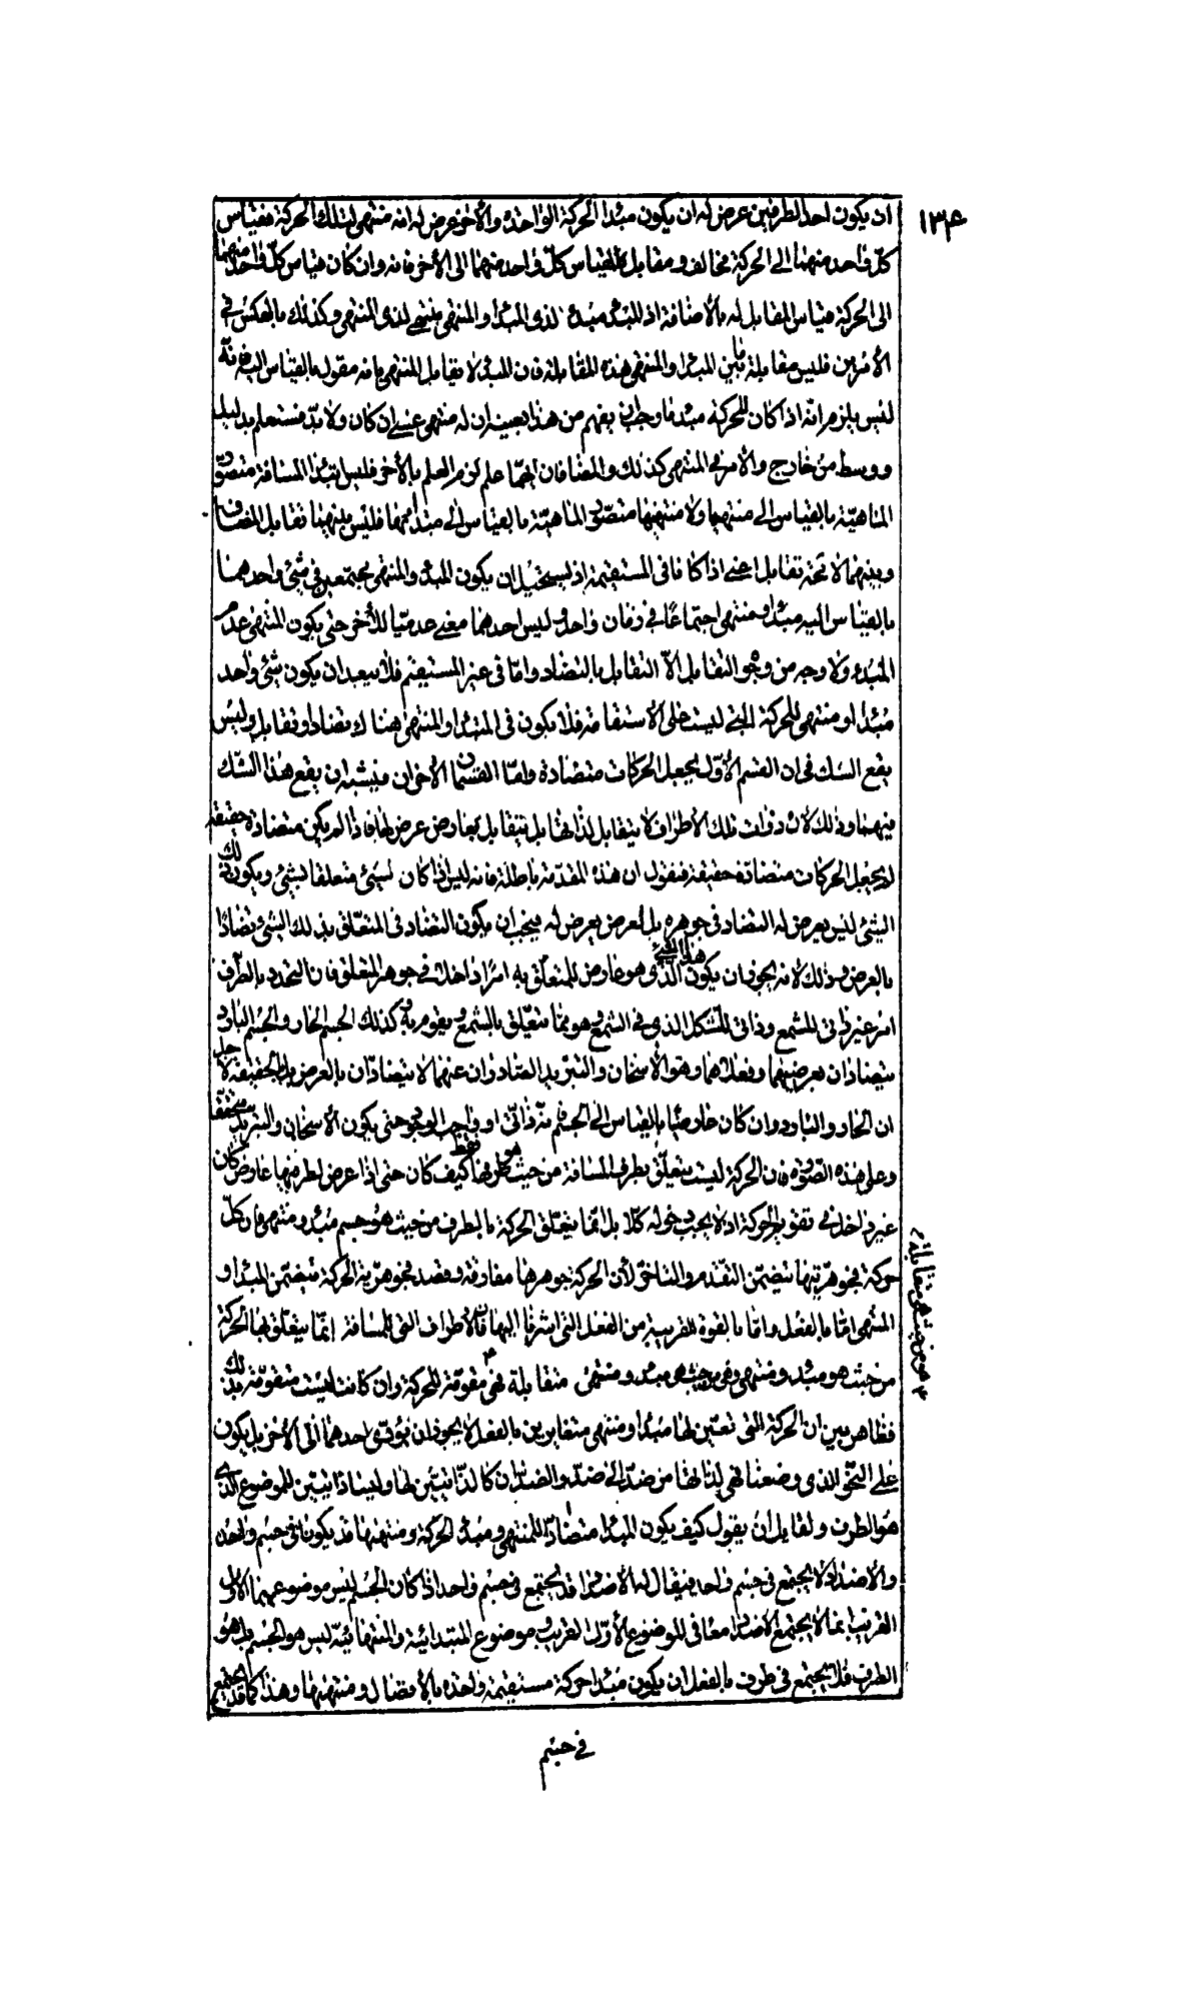 ١٣٤
ان يكون احد الطرفين عرض له ان يكون مبدا الحركة الواحدة والآخر عرض له انه منتهى لتلك الحركة فقياس
كلّ واحد منهما الى الحركة مخالف ومقابل لقياس كلّ واحد منهما الى الآخر فانه وان كان قياس كلّ واحد منهما
الى الحركة قياس المقابل له بالاضافة اذ المبدء مبدء لذى المبدا والمنتهى منتهى لذى المنتهى وكذلك بالعكس فى
الأمرين فليس مقابلة ما بين المبدا والمنتهى هذه المقابلة فان المبدء لا يقابل المنتهى بانه مقول بالقياس اليه فانّه
ليس يلزم انّه اذا كان للحركة مبدء ما وجب ان يفهم من هذا بعينه ان له منتهى عسى ان كان ولا بدّ فستعلم بدليل
ووسط من خارج والأمر فى المنتهى كذلك والمضافان ايّهما علم لزم العلم بالآخر فليس مبتدا المسافة متصوّر
الماهيّة بالقياس الى منتهيها ولا منتهيها متصوّر الماهيّة بالقياس الى مبتدأها فليس بينهما تقابل المضاف
وبينهما لا محة تقابل اعنى اذا كانا فى المستقيمة اذ يستحيل ان يكون المبدء والمنتهى مجتمعين فى شئ واحد هما
بالقياس اليه مبدا ومنتهى اجتماعًا فى زمان واحد وليس احدهما معنى عدميّا للآخر حتى يكون المنتهى عدم
المبدء ولا وجه من وجوه التقابل الّا التقابل بالتضاد وامّا فى غير المستقيم فلا يبعد ان يكون شئ واحد
مبدأ او منتهى للحركة التى ليست على الاستقامة فلا يكون فى المبدا والمنتهى هناك تضاد او تقابل وليس
يقع الشك فى ان القسم الأوّل يجعل الحركات متضادة وامّا القسمان الآخران فيشبه ان يقع هذا الشك
فيهما وذلك لأن ذوات تلك الأطراف لا يتقابل لذاتها بل يتقابل بعارض عرض لها فاذا لم يكن متضادة حقيقة
لم يجعل الحركات متضادة حقيقة فنقول ان هذه المقدّمة باطلة فانه ليس اذا كان شئ متعلقا بشئ ويكون ذلك
الشئ ليس يعرض له التضاد فى جوهره بل لعرض يعرض له يجب ان يكون التضاد فى المتعلّق بذلك الشئ تضادّا
بالعرض وذلك لانه يجوز ان يكون هذا الشئ الذى هو عارض للمتعلّق به امرًا داخلا فى جوهر المتعلق فان التحدد بالطّرف
امر غير ذاتى للشمع وذاتى للشكل الذى فى الشمع وهو مما يتعلّق بالشمع ويقوم به وكذلك الجسم الحار والجسم البارد
يتضادّان بعرضيهما وفعلاهما وهو الأسخان والتبريد الصّادران عنهما لا يتضادّان بالعرض بل بالحقيقة لاجل
ان الحار والبارد وان كان عارضا بالقياس الى الجسم فانّه ذاتى او واجب الوجود حتى يكون الأسخان والتبريد متحققا
وعلى هذه الصّورة فان الحركة ليست يتعلّق بطرف المسافة من حيث هو طرف فقط كيف كان حتى اذا عرض لطرفيها عارض كان
غير داخل فى تقوم الحركة اذ لا يجب دخوله كلّا بل انّما يتعلّق الحركة بالطرف من حيث هو جسم مبدء ومنتهى فان كلّ
حركة فجوهريّتها يتضمّن التقدم والتاخر لأن الحركة جوهرها مفارقة وقصد فجوهريّة الحركة يتضمّن المبدا و
المنتهى امّا بالفعل وامّا بالقوة القريبة من الفعل التى اشرنا اليها فالأطراف التى للمسافة انّما يتعلّق بها الحركة
من حيث هو مبدء ومنتهى وهى من حيث هى مبدء ومنتهى متقابلة فهى مقومّة للحركة وان كانت ليست متقومّة بذلك
فظاهر بين ان الحركة التى تعيّن لها مبدا ومنتهى متغايرين بالفعل لا يجوز ان يؤدّى احدهما الى الآخر بل يكون
على النحو الذى وضعنا فهى لذاتها من ضدّ الى ضدّ والضدّان كالذاتيّين لها وليسا ذاتيّين للموضوع الذى
هو الطرف ولقايل ان يقول كيف يكون المبدا متضادّا للمنتهى ومبدء الحركة ومنتهاها قد يكون فى جسم واحد
والأضداد لا يجتمع فى جسم واحد فيقال له الأضداد قد يجتمع فى جسم واحد اذا كان الجسم ليس موضوعهما الاول
القريب انما لا يجتمع الاضداد معا فى الموضوع الأوّل القريب وموضوع المبتدائية والمنتهائيّة ليس هو الجسم بل هو
الطرف فلا يجتمع فى طرف بالفعل ان يكون مبدا حركة مستقيمة واحدة بالاتصال ومنتهيها وهذا كما قد يجتمع
فى جسم